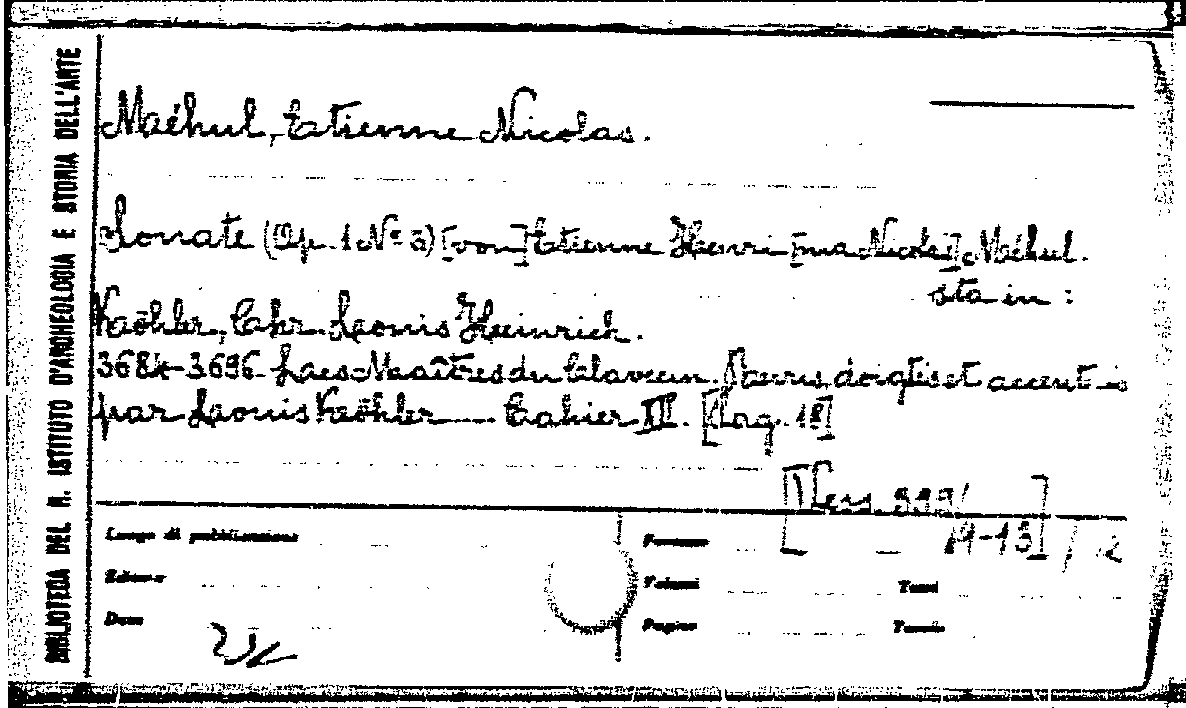 BIBLIOTECA DEL R. ISTITUTO D'ARCHEOLOGIA E STORIA DELL'ARTE
Méhul, Etienne Nicolas.
Sonate (Op. 1 Nº 3) [von] Etienne Henri [ma Nicolas] Méhul.
sta in:
Köhler, Chr. Louis Heinrich.
3684-3696 Les Maîtres du Clavecin. Revus, doigtés et accentués
par Louis Köhler — Cahier XII. [Pag. 18]
19-13] / 2
Luogo di pubblicazione
Formato
Editore
Volumi
Tomi
Data
Pagine
Tavole